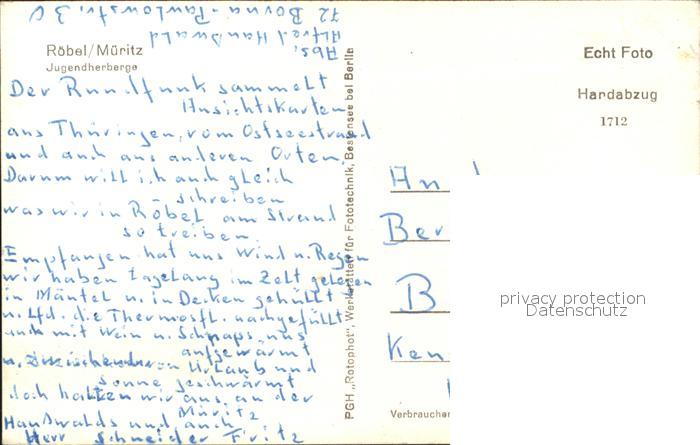 Röbel/Müritz
Jugendherberge
Abs.
Alfred Hanßwald
72 Borna-Pawlowstr. 30
Der Rundfunk sammelt
Ansichtskarten
aus Thüringen, vom Ostseestrand
und auch aus anderen Orten.
Darum will ich auch gleich
schreiben
was wir in Röbel am Strand
so treiben
Empfangen hat uns Wind u. Regen
wir haben tagelang im Zelt gelegen
in Mäntel u. in Decken gehüllt
u. lfd. die Thermosfl. nachgefüllt
auch mit Wein u. Schnaps uns
aufgewärmt
u. von Urlaub und
Sonne geschwärmt
doch halten wir aus, an der
Müritz
Hanßwalds und auch
Herr Schneider Fritz
PGH „Rotophot", Werkstätten für Fototechnik, Bestensee bei Berlin
Echt Foto
Handabzug
1712
An
Ber
B
Ken
Verbraucher
privacy protection
Datenschutz